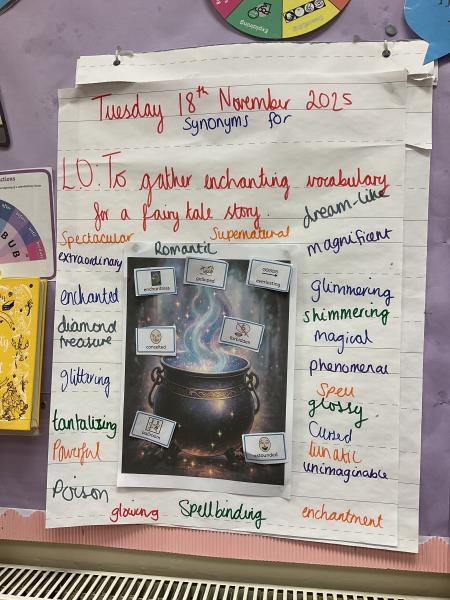 Tuesday 18th November 2025
Synonyms for
L.O: To gather enchanting vocabulary
for a fairy tale story.
dream-like
Spectacular
Romantic
Supernatural
magnificent
extraordinary
enchantress
galloped
everlasting
enchanted
glimmering
shimmering
diamond
treasure
conceited
forbidden
magical
phenomenal
glittering
Spell
glossy
tantalising
Cursed
Powerful
lunatic
astounded
unimaginable
Poison
glowing
Spellbinding
enchantment
Explaining
BUB